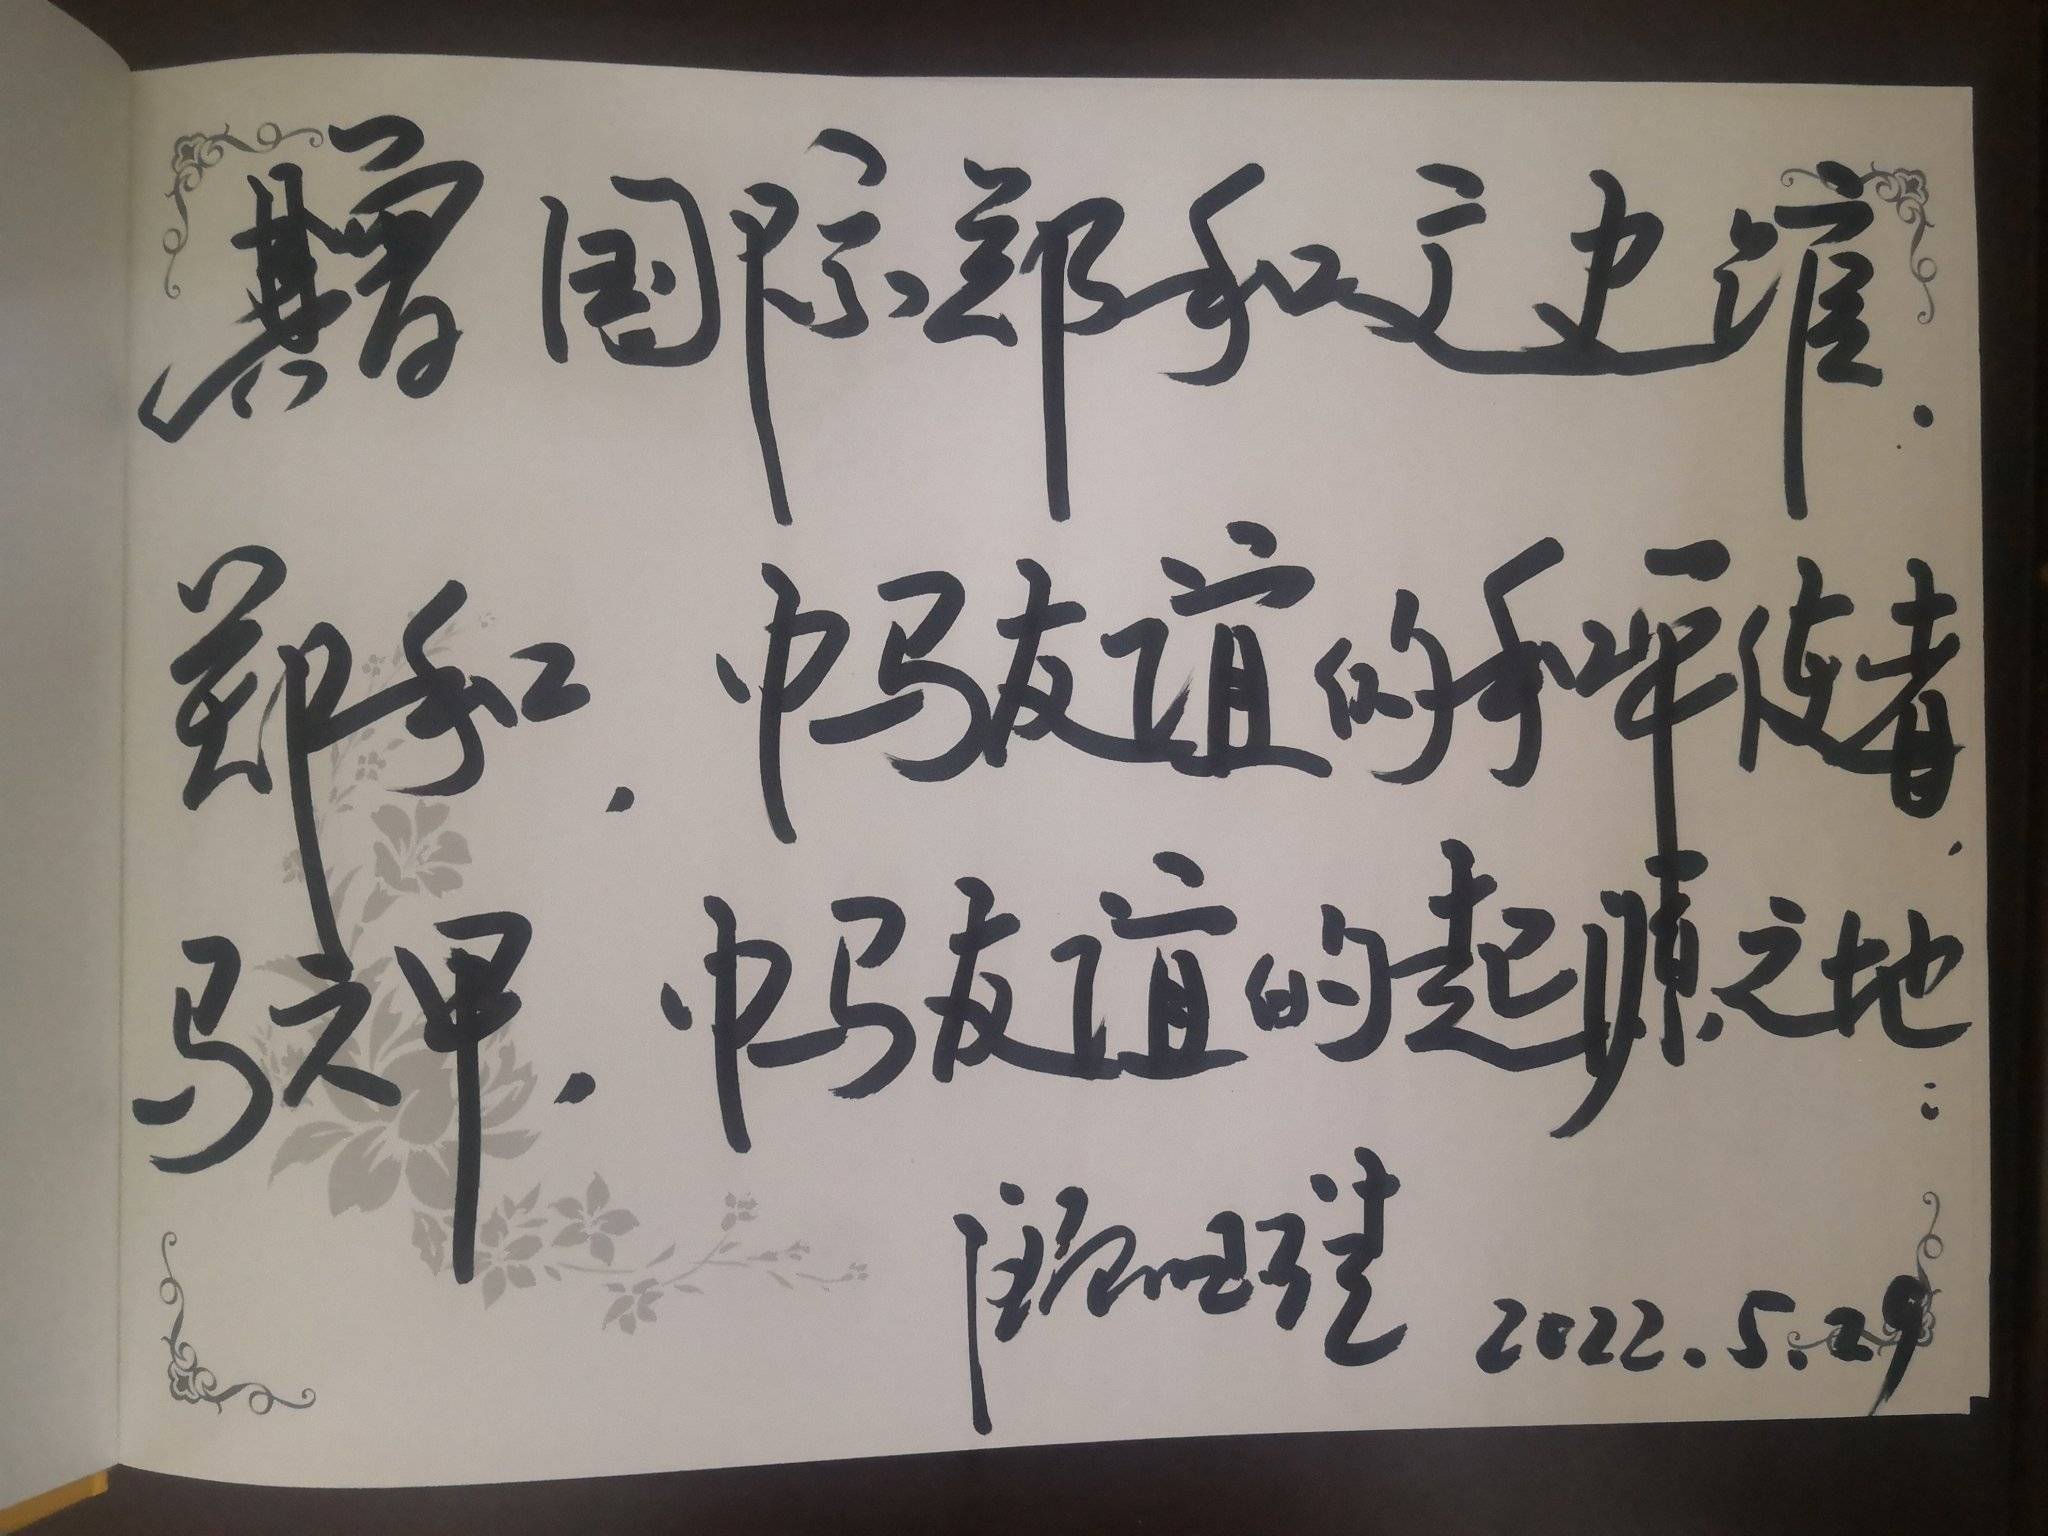 赠 国际郑和文史馆.
郑和. 中马友谊的和平使者.
马六甲. 中马友谊的起源之地:
2022.5.29